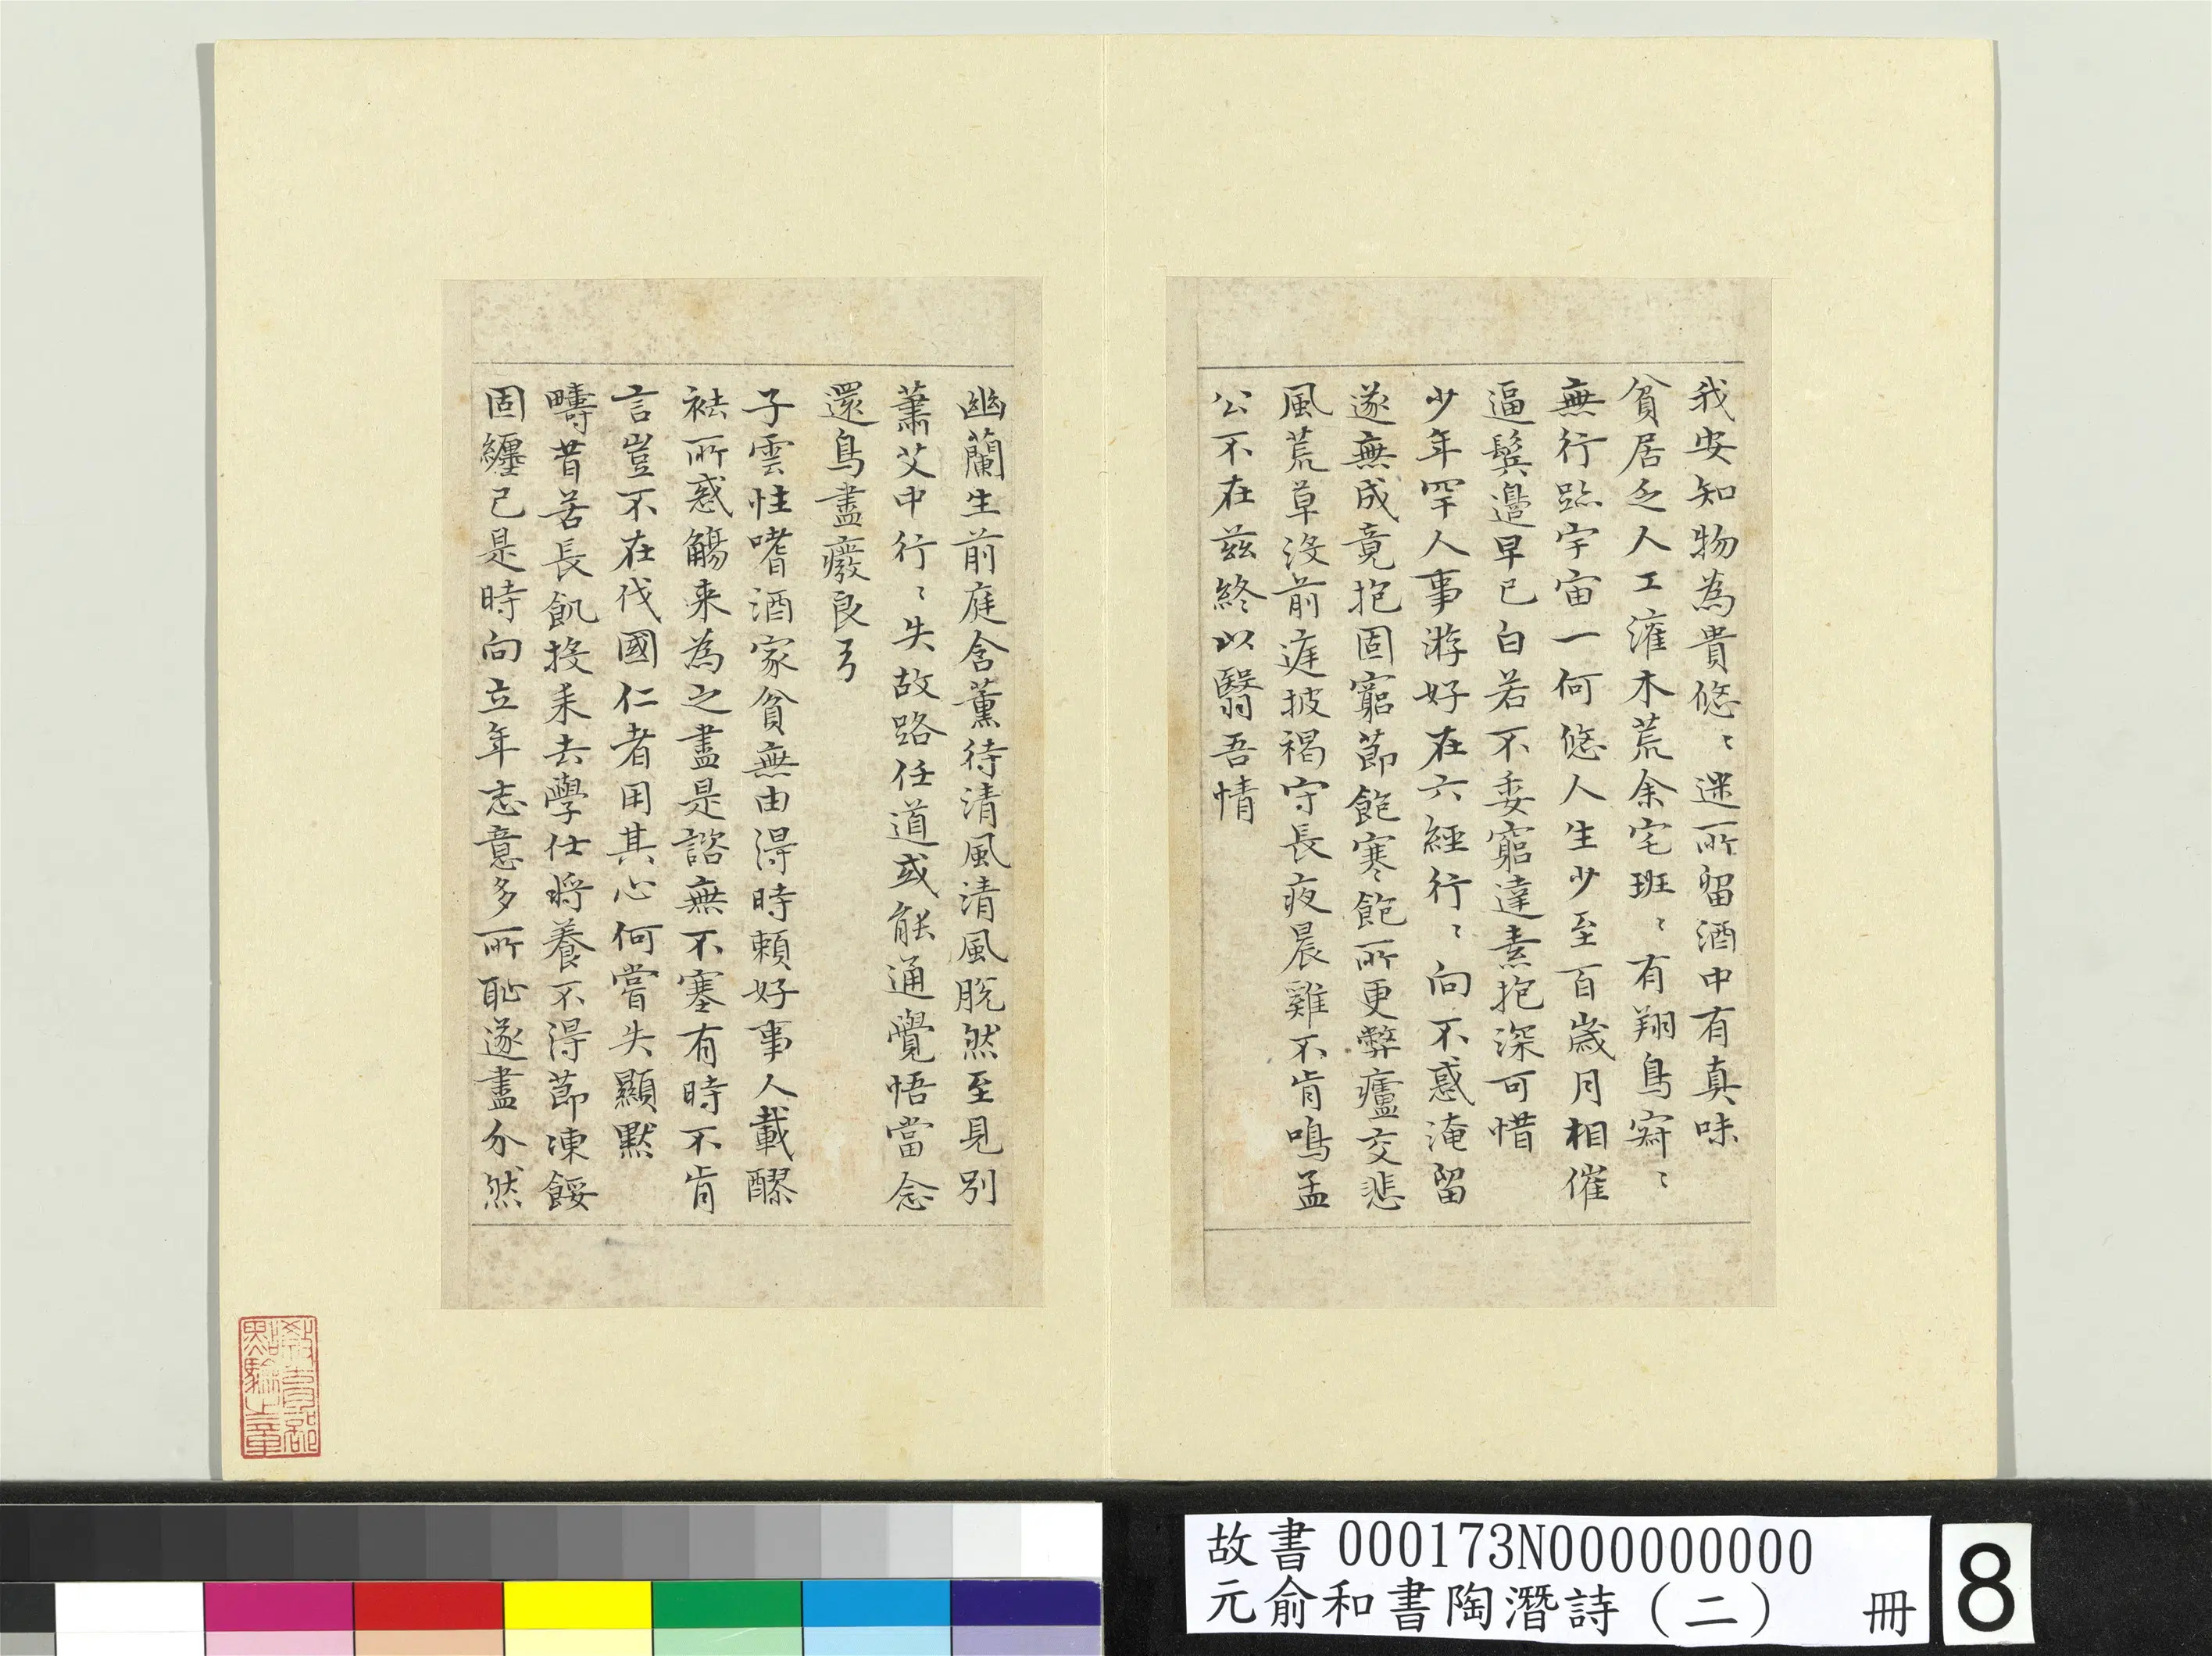 我安知物為貴悠〻迷所留酒中有真味
貧居乏人工灌木荒余宅班〻有翔鳥寂〻
無行跡宇宙一何悠人生少至百歲月相催
逼鬢邊早已白若不委窮達素抱深可惜
少年罕人事游好在六經行〻向不惑淹留
遂無成竟抱固窮節飽寒飽所更弊廬交悲
風荒草沒前庭披褐守長夜晨雞不肯鳴孟
公不在茲終以翳吾情
幽蘭生前庭含薰待清風清風脫然至見別
蕭艾中行〻失故路任道或能通覺悟當念
還鳥盡廢良弓
子雲性嗜酒家貧無由得時賴好事人載醪
袪所惑觴來為之盡是諮無不塞有時不肯
言豈不在伐國仁者用其心何嘗失顯默
疇昔苦長飢投耒去學仕將養不得節凍餒
固纏己是時向立年志意多所恥遂盡介然
教育部
點驗之章
故書000173N000000000
元俞和書陶潛詩（二） 冊
8